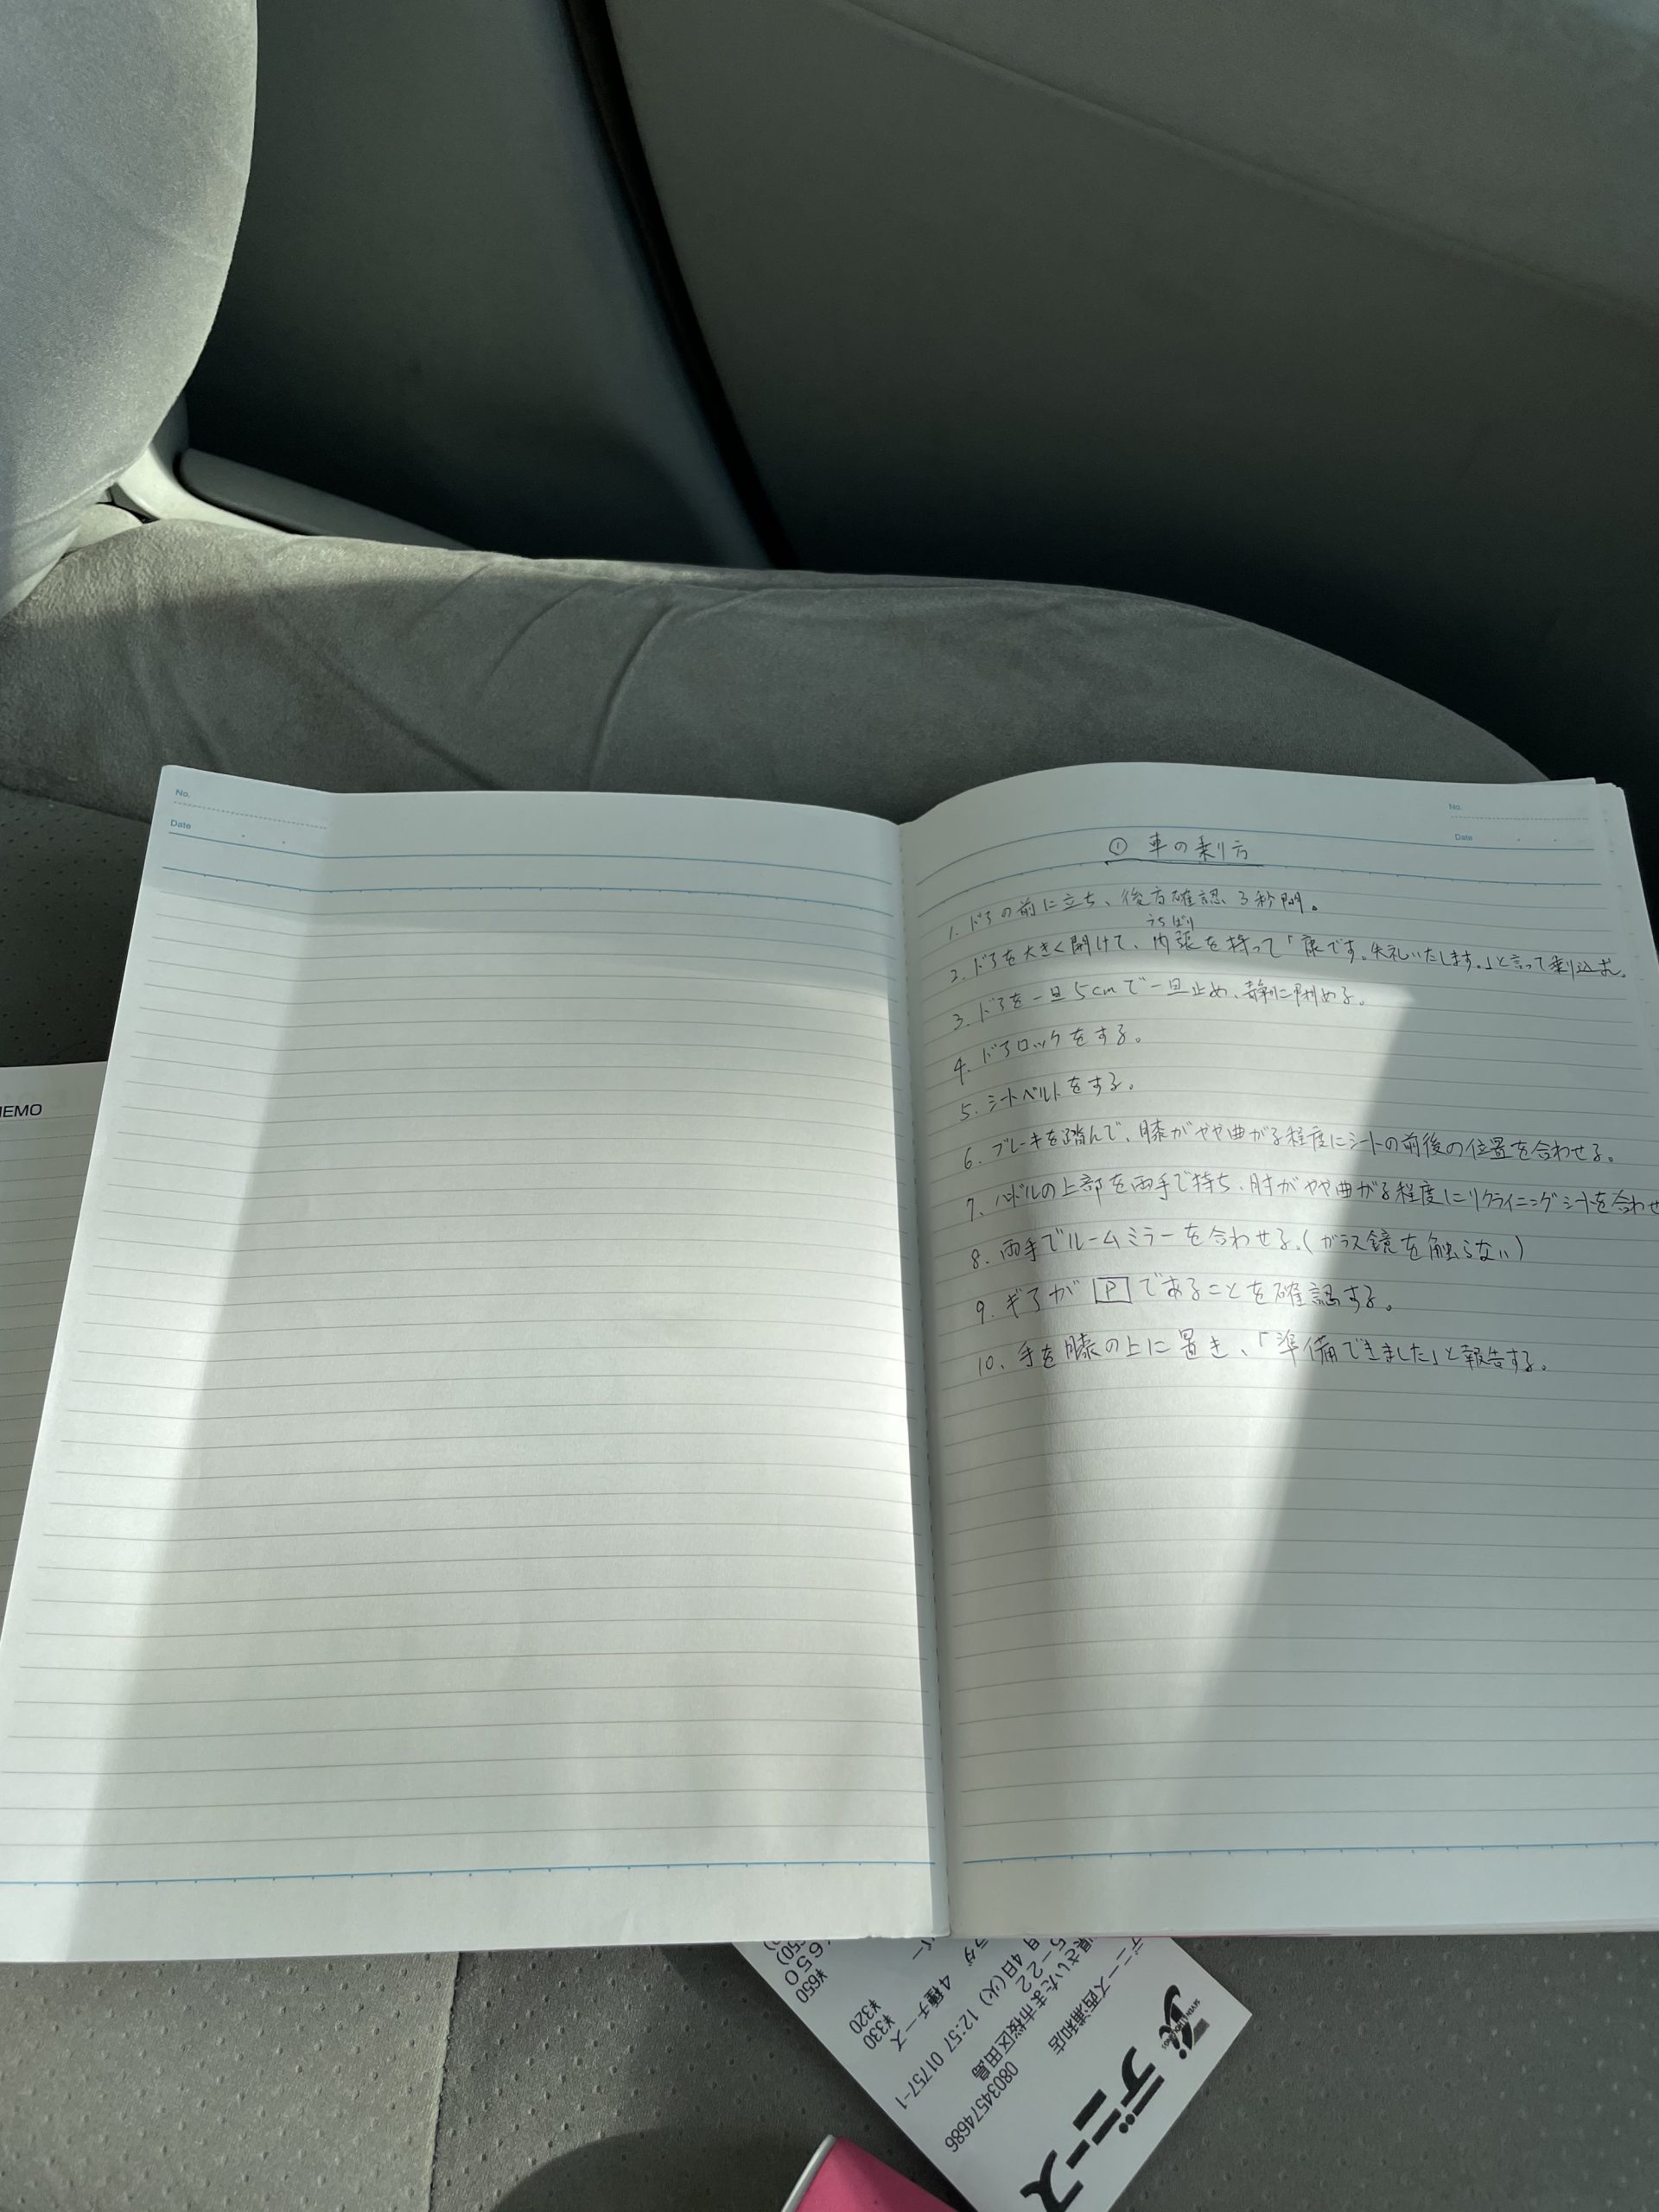 No.
Date
No.
Date
① 車の乗り方
1. ドアの前に立ち、後方確認 3秒間。
うちばり
2. ドアを大きく開けて、内張を持って「康です。失礼いたします。」と言って乗り込む。
3. ドアを一旦5cmで一旦止め、静かに閉める。
4. ドアロックをする。
5. シートベルトをする。
6. ブレーキを踏んで、膝がやや曲がる程度にシートの前後の位置を合わせる。
7. ハンドルの上部を両手で持ち、肘がやや曲がる程度にリクライニングシートを合わせ
8. 両手でルームミラーを合わせる。(ガラス鏡を触らない)
9. ギアが P であることを確認する。
10. 手を膝の上に置き、「準備できました」と報告する。
EMO
デニーズ
デニーズ西浦和店
県さいたま市桜区田島
5-22 08034574686
月 4日(火) 12:57 01757-1
ラダ 4種チーズ
バー ¥330
¥320
650 ¥650
50)